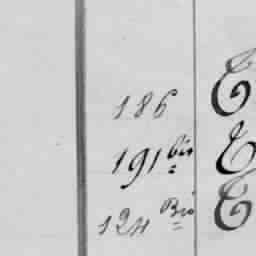 186 E
191 bis E
124 Bis E